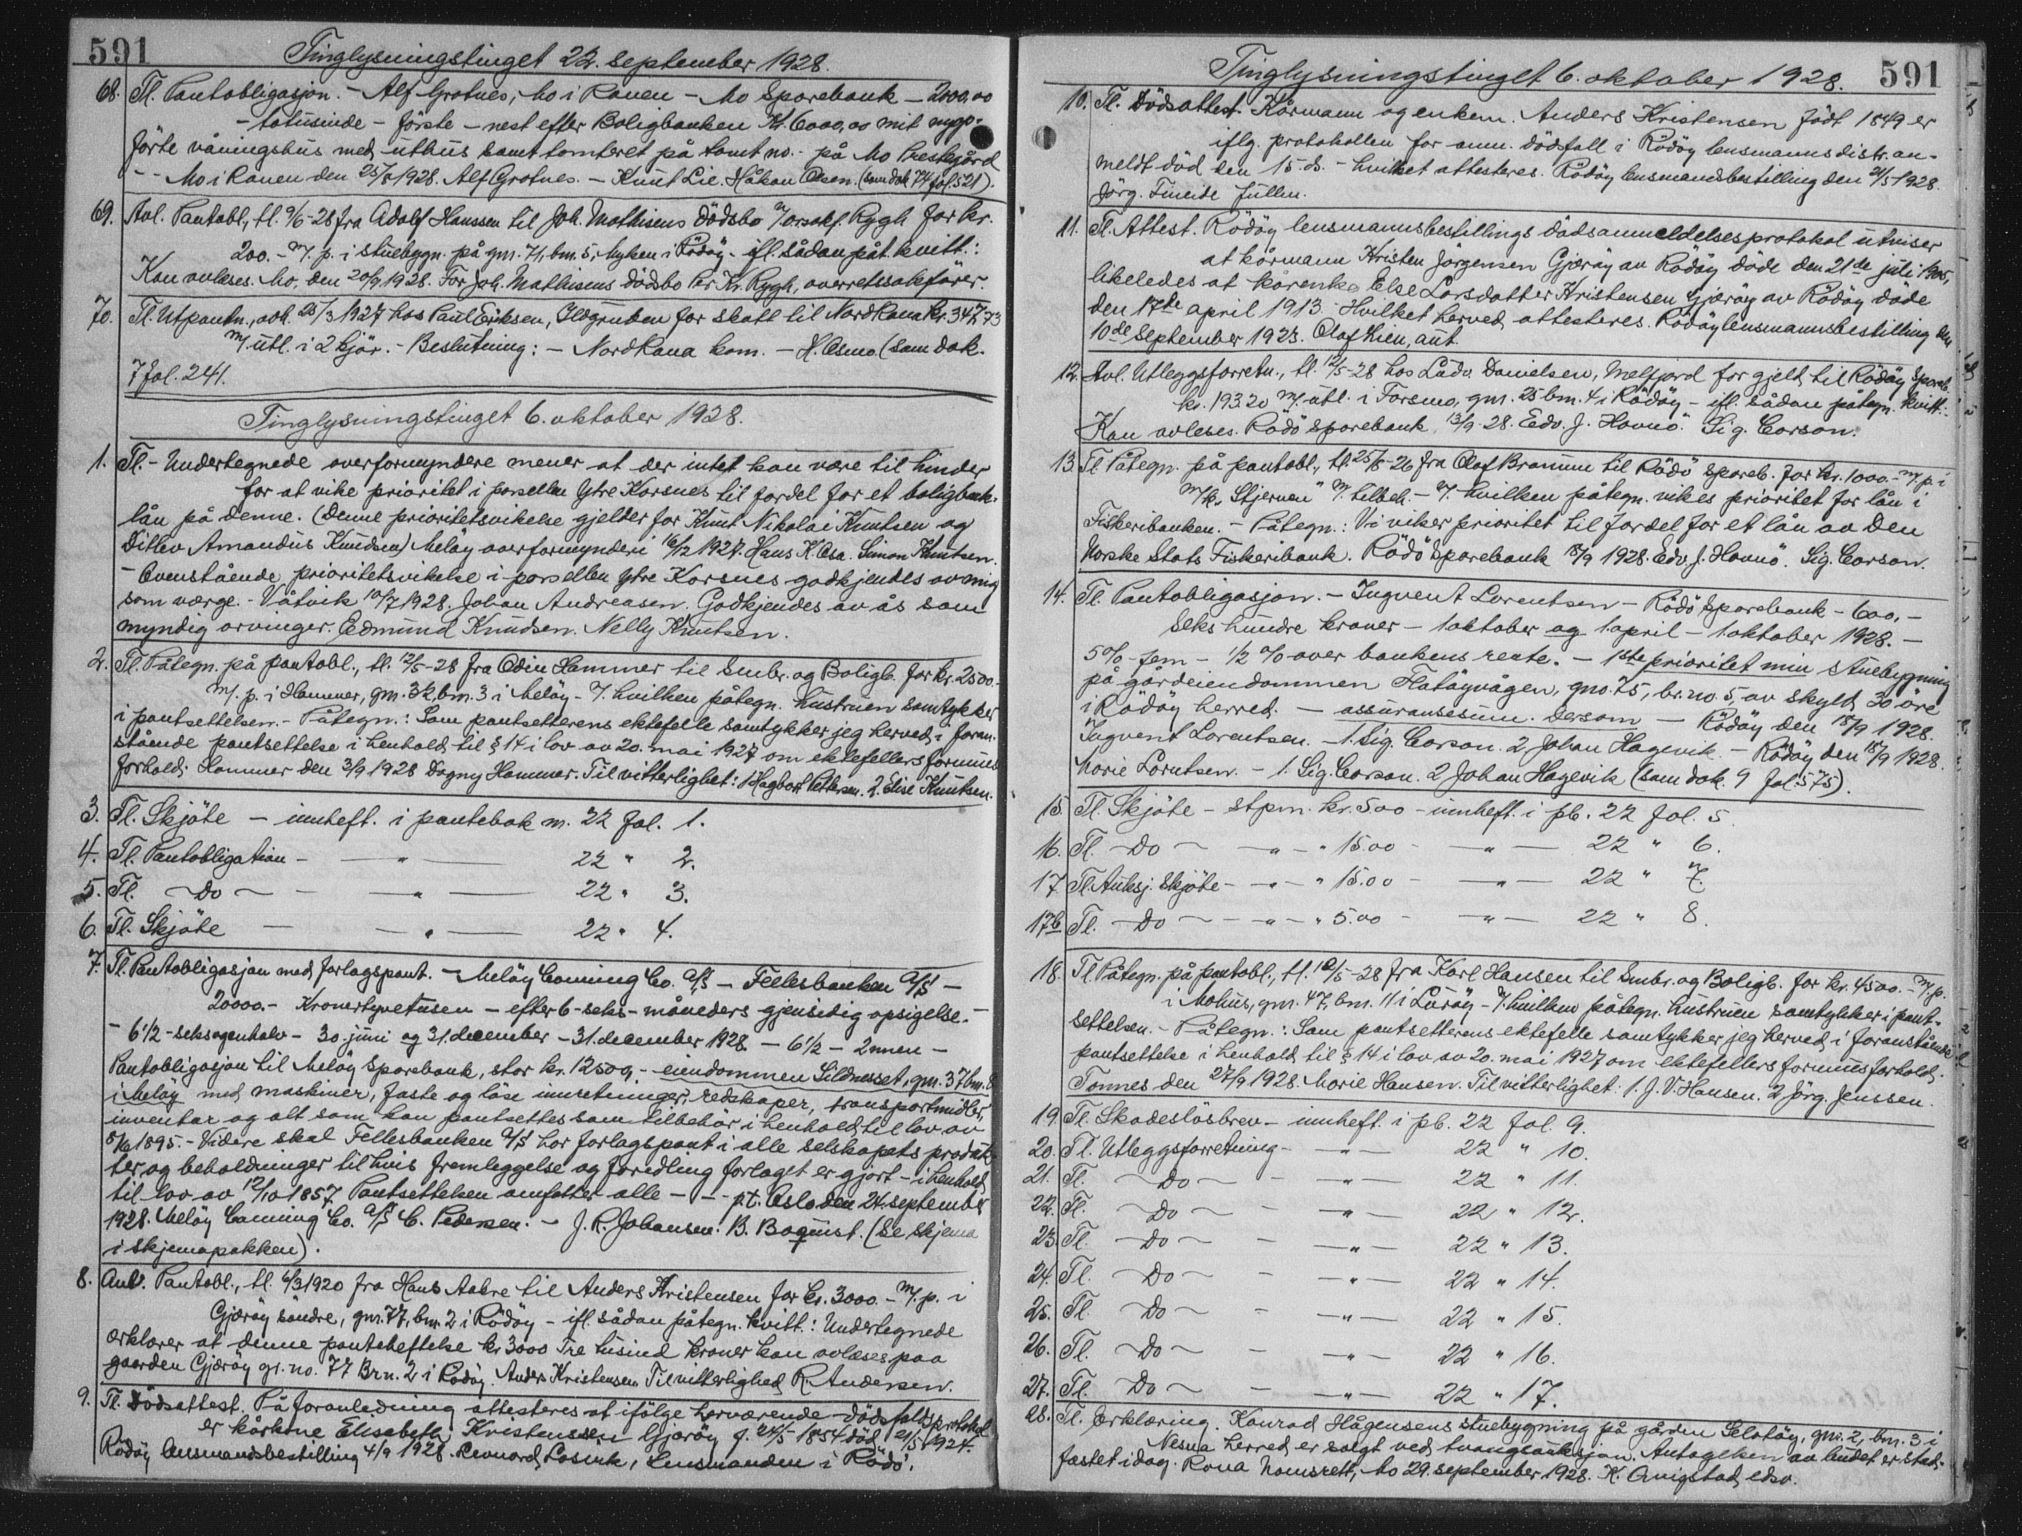 591
Tinglysningstinget 22. september 1928.
68. Tl. Pantobligasjon. - Alf Grotnes, Mo i Ranen - Mo Sparebank - 2000,00
- totusinde - første - nest efter Boligbanken Kr. 6000,00 mit nyop-
førte våningshus med uthus samt tomteret på tomt no. - på Mo Prestejord
- - Mo i Ranen den 25/8 1928. Alf Grotnes. - Knut Lie. Håkon Olsen. (som dok 74 fol. 521).
69. Avl. Pantobl., tl. 9/6-28 fra Adolf Hanssen til Joh. Mathisens dödsbo v/orsakf. Rygh for kr.
200.- m/. p. i stuebygn. på gnr. 71, bnr. 5, Myken i Rödöy - ifl. sådan påt. kvitt.:
Kan avleses. Mo, den 20/9 1928. For Joh. Mathisens dödsbo Per Kr. Rygh, overrettssakförer.
70. Tl. Utpantn., avh. 23/3 1927 hos Paul Eriksen, Ildgruben for skatt til Nord Rana kr. 347.73
m/ utl. i 2 kjör. - Beslutning: - Nord Rana kom. - H. Osmo (som dok.
7 fol. 241.
Tinglysningstinget 6. oktober 1928.
1. Tl. - Undertegnede overformyndere mener at der intet kan være til hinder
for at vike prioritet i parsellen Ytre Korsnes til fordel for et boligbank-
lån på denne. (Denne prioritetsvikelse gjelder for Knut Nikolai Knutsen og
Ditlev Amandus Knudsen) Melöy overformynderi 16/12 1927. Hans K. Osa. Simon Knutsen.
- Ovenstående prioritetsvikelse i parsellen Ytre Korsnes godkjendes av mig
som værge. - Våtvik 10/7 1928. Johan Andreasen. Godkjendes av ås som
myndig arvinger. Edmund Knudsen. Nelly Knutsen.
2. Tl. Påtegn. på pantobl., tl. 12/5-28 fra Odin Hammer til Småbr. og Boligb. for kr. 2500.-
m/. p. i Hammer, gnr. 32 bnr. 3 i Melöy - v/. hvilken påtegn. hustruen samtykker
i pantsettelsen. - Påtegn.: Som pantsetterens ektefelle samtykker jeg herved i foran-
stående pantsettelse i henhold til § 14 i lov av 20. mai 1927 om ektefellers formues-
forhold. Hammer den 3/9 1928 Dagny Hammer. Til vitterlighet: 1. Hagbart Pettersen. 2. Elise Knutsen.
3. Tl. Skjöte - innheft. i pantebok nr. 22 fol. 1.
4. Tl. Pantobligation - — „ — 22 „ 2.
5. Tl. - Do - - „ — 22 „ 3.
6. Tl. Skjöte — „ — 22 „ 4.
7. Tl. Pantobligasjon med forlagspant. - Melöy Canning Co. A/S - Fellesbanken A/S -
20000.- Kroner tyvetusen - efter 6 - seks - måneders gjensidig opsigelse. -
- 6 1/2 - seksogenhalv - 30. juni og 31. december - 31. december 1928 - 6 1/2 - 2nnen -
Pantobligasjon til Melöy Sparebank, stor kr. 12500,- eiendommen Sildnesset, gnr. 37 bnr. 8
i Melöy med maskiner, faste og löse innretninger, redskaper, transportmidler,
inventar og alt som kan pantsettes som tilbehör i henhold til lov av
8/6 1895. - Videre skal Fellesbanken A/S ha forlagspant i alle selskapets produk-
ter og beholdninger til hvis fremleggelse og foredling forlaget er gjort - i henhold
til lov av 12/10 1857. Pantsettelsen omfatter alle - - - p.t. Oslo den 24. september
1928. Melöy Canning Co. A/S C. Pedersen. - J. R. Johansen. B. Boquist. (Se skjema
i skjemapakken).
8. Avl. Pantobl., tl. 6/3 1920 fra Hans Aakre til Anders Kristensen for kr. 3000.- m/. p. i
Gjæröy söndre, gnr. 77, bnr. 2 i Rödöy - ifl. sådan påtegn. kvitt.: Undertegnede
erklærer at denne panteheftelse kr 3000 Tre tusind kroner kan avlæses paa
gaarden Gjæröy gr. no. 77 Brn. 2 i Rödöy. Anders Kristensen Til vitterlighed R. Andersen.
9. Tl. Dödsattest. På foranledning attesteres at ifölge herværende dödsfaldsprotokol
er kårkone Elisabeth Kristenssen Gjæröy f. 24/5 1854 död 21/5 1924.
Rödöy lensmandsbestilling 4/9 1928. Leonard, Lensmanden i Rödö.
Tinglysningstinget 6. oktober 1928.
591
10. Tl. Dödsattest. Kårmann og enkem. Anders Kristensen födt 1849 er
iflg. protokollen for anm. dödsfall i Rödöy lensmannsdistr. an-
meldt död den 15 ds. - hvilket attesteres. Rödöy lensmandsbestilling den 21/5 1928.
Jörg. Fineide fullm.
11. Tl. Attest. Rödöy lensmannsbestillings dödsanmeldelsesprotokol utviser
at kårmann Kristen Jörgensen Gjæröy av Rödöy döde den 21de juli 1905,
likeledes at kårenke Else Larsdatter Kristensen Gjæröy av Rödöy döde
den 17de april 1913. Hvilket herved attesteres. Rödöy lensmannsbestilling den
10de september 1923. Olaf Lien, aut.
12. Avl. Utleggsforretn., tl. 12/5-28 hos Lådv. Danielsen, Melfjord for gjeld til Rödöy Spareb.
kr. 193.20 m/. utl. i Forsmo, gnr. 25 bnr. 4 i Rödöy - ifl. sådan påtegn. kvitt.:
Kan avleses. Rödö Sparebank, 13/9-28. Edv. J. Havnö. Sig. Carson.
13. Tl. Påtegn. på pantobl., tl. 25/8-26 fra Olaf Bramm til Rödö Spareb. for kr. 1000.- m/. p. i
m/k. „Stjernen" m/. tilbeh. - v/. hvilken påtegn. vikes prioritet for lån i
Fiskeribanken. - Påtegn.: Vi viker prioritet til fordel for et lån av Den
Norske Stats Fiskeribank. Rödö Sparebank 18/9 1928. Edv. J. Havnö. Sig. Carson.
14. Tl. Pantobligasjon. - Ingvent Lorentsen - Rödö Sparebank - 600,-
Seks hundre kroner - 1 oktober og 1. april - 1 oktober 1928. -
5 % - fem - 1/2 % over bankens rente. - 1ste prioritet min stuebygning
på gårdeiendommen Flatöyvågen, gno. 75, br. no. 5, av skyld 30 öre
i Rödöy herred. - assuransesum. Dersom - Rödöy den 18/9 1928.
Ingvent Lorentsen. - 1. Sig. Carson. 2 Johan Hagevik. - Rödöy den 18/9 1928.
Marie Lorntsen. - 1. Sig. Carson. 2 Johan Hagevik (som dok. 9 fol. 575).
15. Tl. Skjöte - stpm. kr. 5.00 - innheft. i pb. 22 fol. 5.
16. Tl. - Do - - „ - „ 15.00 - - „ - 22 „ 6.
17. Tl. Auksj. Skjöte - - „ - „ 15.00 - - „ - 22 „ 7.
17b Tl. - Do - - „ - „ 5.00 - - „ - 22 „ 8.
18. Tl. Påtegn. på pantobl., tl. 12/5-28 fra Karl Hansen til Småbr. og Boligb. for kr. 4500.- m/. p.
i Mohus, gnr. 47, bnr. 11 i Luröy - v/. hvilken påtegn. hustruen samtykker i pant-
settelsen. - Påtegn.: Som pantsetterens ektefelle samtykker jeg herved i foranstående
pantsettelse i henhold til § 14 i lov av 20. mai 1927 om ektefellers formuesforhold.
Tonnes den 27/9 1928. Marie Hansen. Til vitterlighet: 1. J. V. Hansen. 2 Jörg. Jenssen.
19. Tl. Skadeslösbrev - innheft. i pb. 22 fol. 9.
20. Tl. Utleggsforretning - - „ - 22 „ 10.
21. Tl. - Do - - - „ - 22 „ 11.
22. Tl. - Do - - - „ - 22 „ 12.
23. Tl. - Do - - - „ - 22 „ 13.
24. Tl. - Do - - - „ - 22 „ 14.
25. Tl. - Do - - - „ - 22 „ 15.
26. Tl. - Do - - - „ - 22 „ 16.
27. Tl. - Do - - - „ - 22 „ 17.
28. Tl. Erklæring. Konrad Hågensens stuebygning på gården Slotöy, gnr. 2, bnr. 3 i
Nesna herred er solgt ved tvangsauksjon. Antagelsen av budet er stad-
festet idag. Rana Namsrett, Mo 29. september 1928. K. Qvigstad edsv.